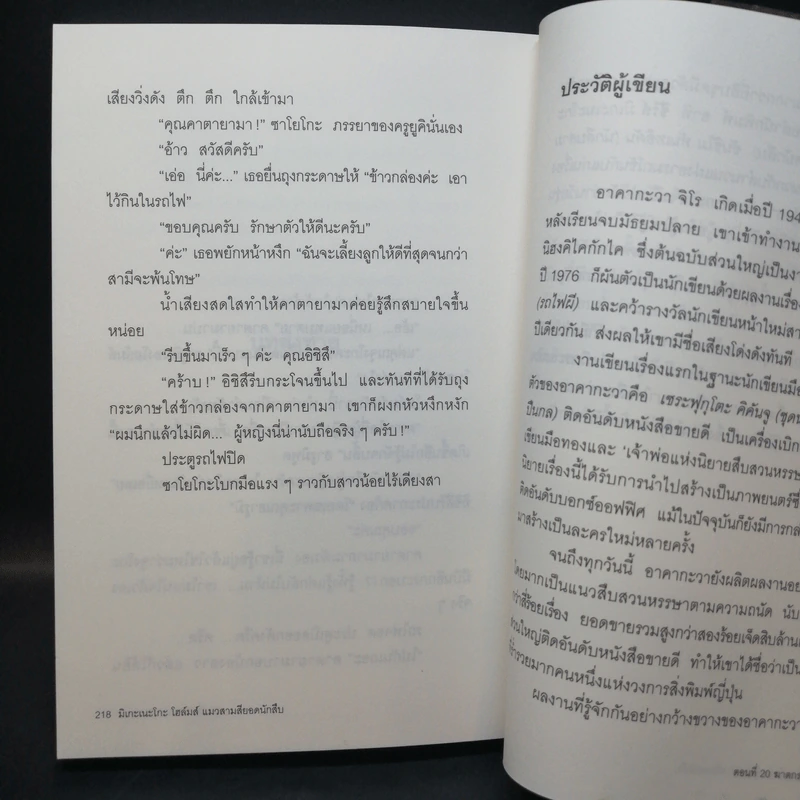 เสียงวิ่งดัง ตึก ตึก ใกล้เข้ามา
“คุณคาตายามา !” ซาโยโกะ ภรรยาของครูยูคินั่นเอง
“อ้าว สวัสดีครับ”
“เอ่อ นี่ค่ะ...” เธอยื่นถุงกระดาษให้ “ข้าวกล่องค่ะ เอา
ไว้กินในรถไฟ”
“ขอบคุณครับ รักษาตัวให้ดีนะครับ”
“ค่ะ” เธอพยักหน้าหงึก “ฉันจะเลี้ยงลูกให้ดีที่สุดจนกว่า
สามีจะพ้นโทษ”
น้ำเสียงสดใสทำให้คาตายามาค่อยรู้สึกสบายใจขึ้น
หน่อย
“รีบขึ้นมาเร็ว ๆ ค่ะ คุณอิชิสึ”
“คร้าบ !” อิชิสึรีบกระโจนขึ้นไป และทันทีที่ได้รับถุง
กระดาษใส่ข้าวกล่องจากคาตายามา เขาก็ผงกหัวหงึกหงัก
“ผมนึกแล้วไม่ผิด... ผู้หญิงนี่น่านับถือจริง ๆ ครับ !”
ประตูรถไฟปิด
ซาโยโกะโบกมือแรง ๆ ราวกับสาวน้อยไร้เดียงสา
218 มิเกะเนะโกะ โฮล์มส์ แมวสามสียอดนักสืบ
ประวัติผู้เขียน
อาคากะวา จิโร เกิดเมื่อปี 194
หลังเรียนจบมัธยมปลาย เขาเข้าทำงาน
นิฮงคิไคกักไค ซึ่งต้นฉบับส่วนใหญ่เป็นงา
ปี 1976 ก็ผันตัวเป็นนักเขียนด้วยผลงานเรื่อง
(รถไฟผี) และคว้ารางวัลนักเขียนหน้าใหม่สา
ปีเดียวกัน ส่งผลให้เขามีชื่อเสียงโด่งดังทันที
งานเขียนเรื่องแรกในฐานะนักเขียนมือ
ตัวของอาคากะวาคือ เซระฟุกุโตะ คิคันจู (ชุดน
ปืนกล) ติดอันดับหนังสือขายดี เป็นเครื่องเบิก
เขียนมือทองและ ‘เจ้าพ่อแห่งนิยายสืบสวนหรรษ
นิยายเรื่องนี้ได้รับการนำไปสร้างเป็นภาพยนตร์ซึ่
ติดอันดับบอกซ์ออฟฟิศ แม้ในปัจจุบันก็ยังมีการกล
มาสร้างเป็นละครใหม่หลายครั้ง
จนถึงทุกวันนี้ อาคากะวายังผลิตผลงานอย
โดยมากเป็นแนวสืบสวนหรรษาตามความถนัด นับ
กว่าสี่ร้อยเรื่อง ยอดขายรวมสูงกว่าสองร้อยเจ็ดสิบล้านเ
ส่วนใหญ่ติดอันดับหนังสือขายดี ทำให้เขาได้ชื่อว่าเป็น
ที่ร่ำรวยมากคนหนึ่งแห่งวงการสิ่งพิมพ์ญี่ปุ่น
ผลงานที่รู้จักกันอย่างกว้างขวางของอาคากะวา
ตอนที่ 20 ฆาตกร